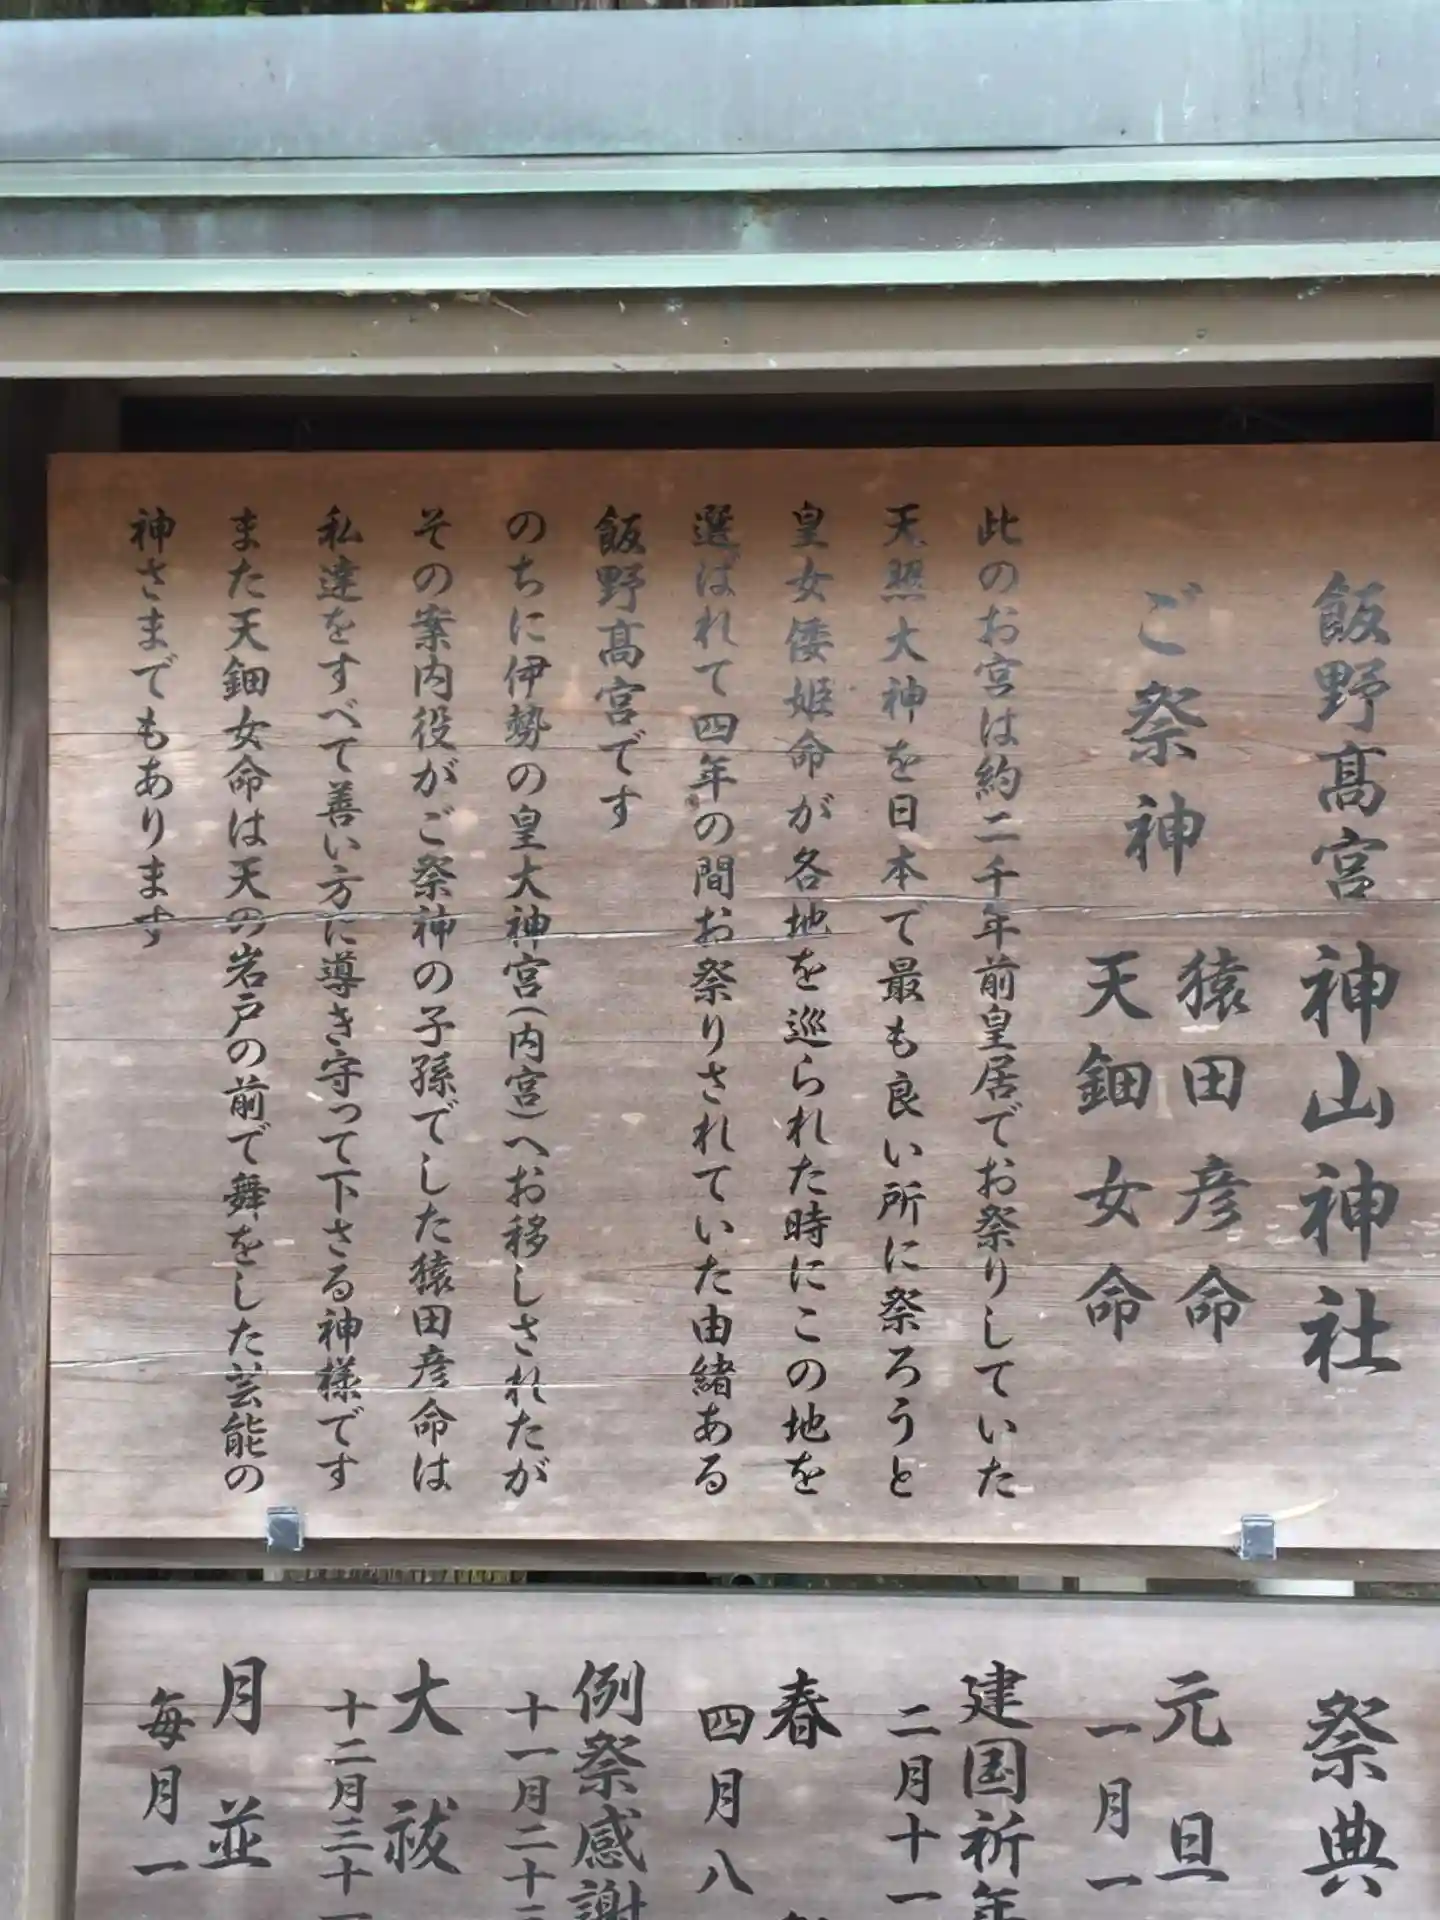 飯野髙宮 神山神社
ご祭神
猿田彦命
天鈿女命
此のお宮は約二千年前皇居でお祭りしていた
天照大神を日本で最も良い所に祭ろうと
皇女倭姫命が各地を巡られた時にこの地を
選ばれて四年の間お祭りされていた由緒ある
飯野髙宮です
のちに伊勢の皇大神宮(内宮)へお移しされたが
その案内役がご祭神の子孫でした猿田彦命は
私達をすべて善い方に導き守って下さる神様です
また天鈿女命は天の岩戸の前で舞をした芸能の
神さまでもあります
祭典
元旦
一月一
建国祈年
二月十一
春
四月八
例祭感謝
十一月二十三
大祓
十二月三十一
月並
毎月一